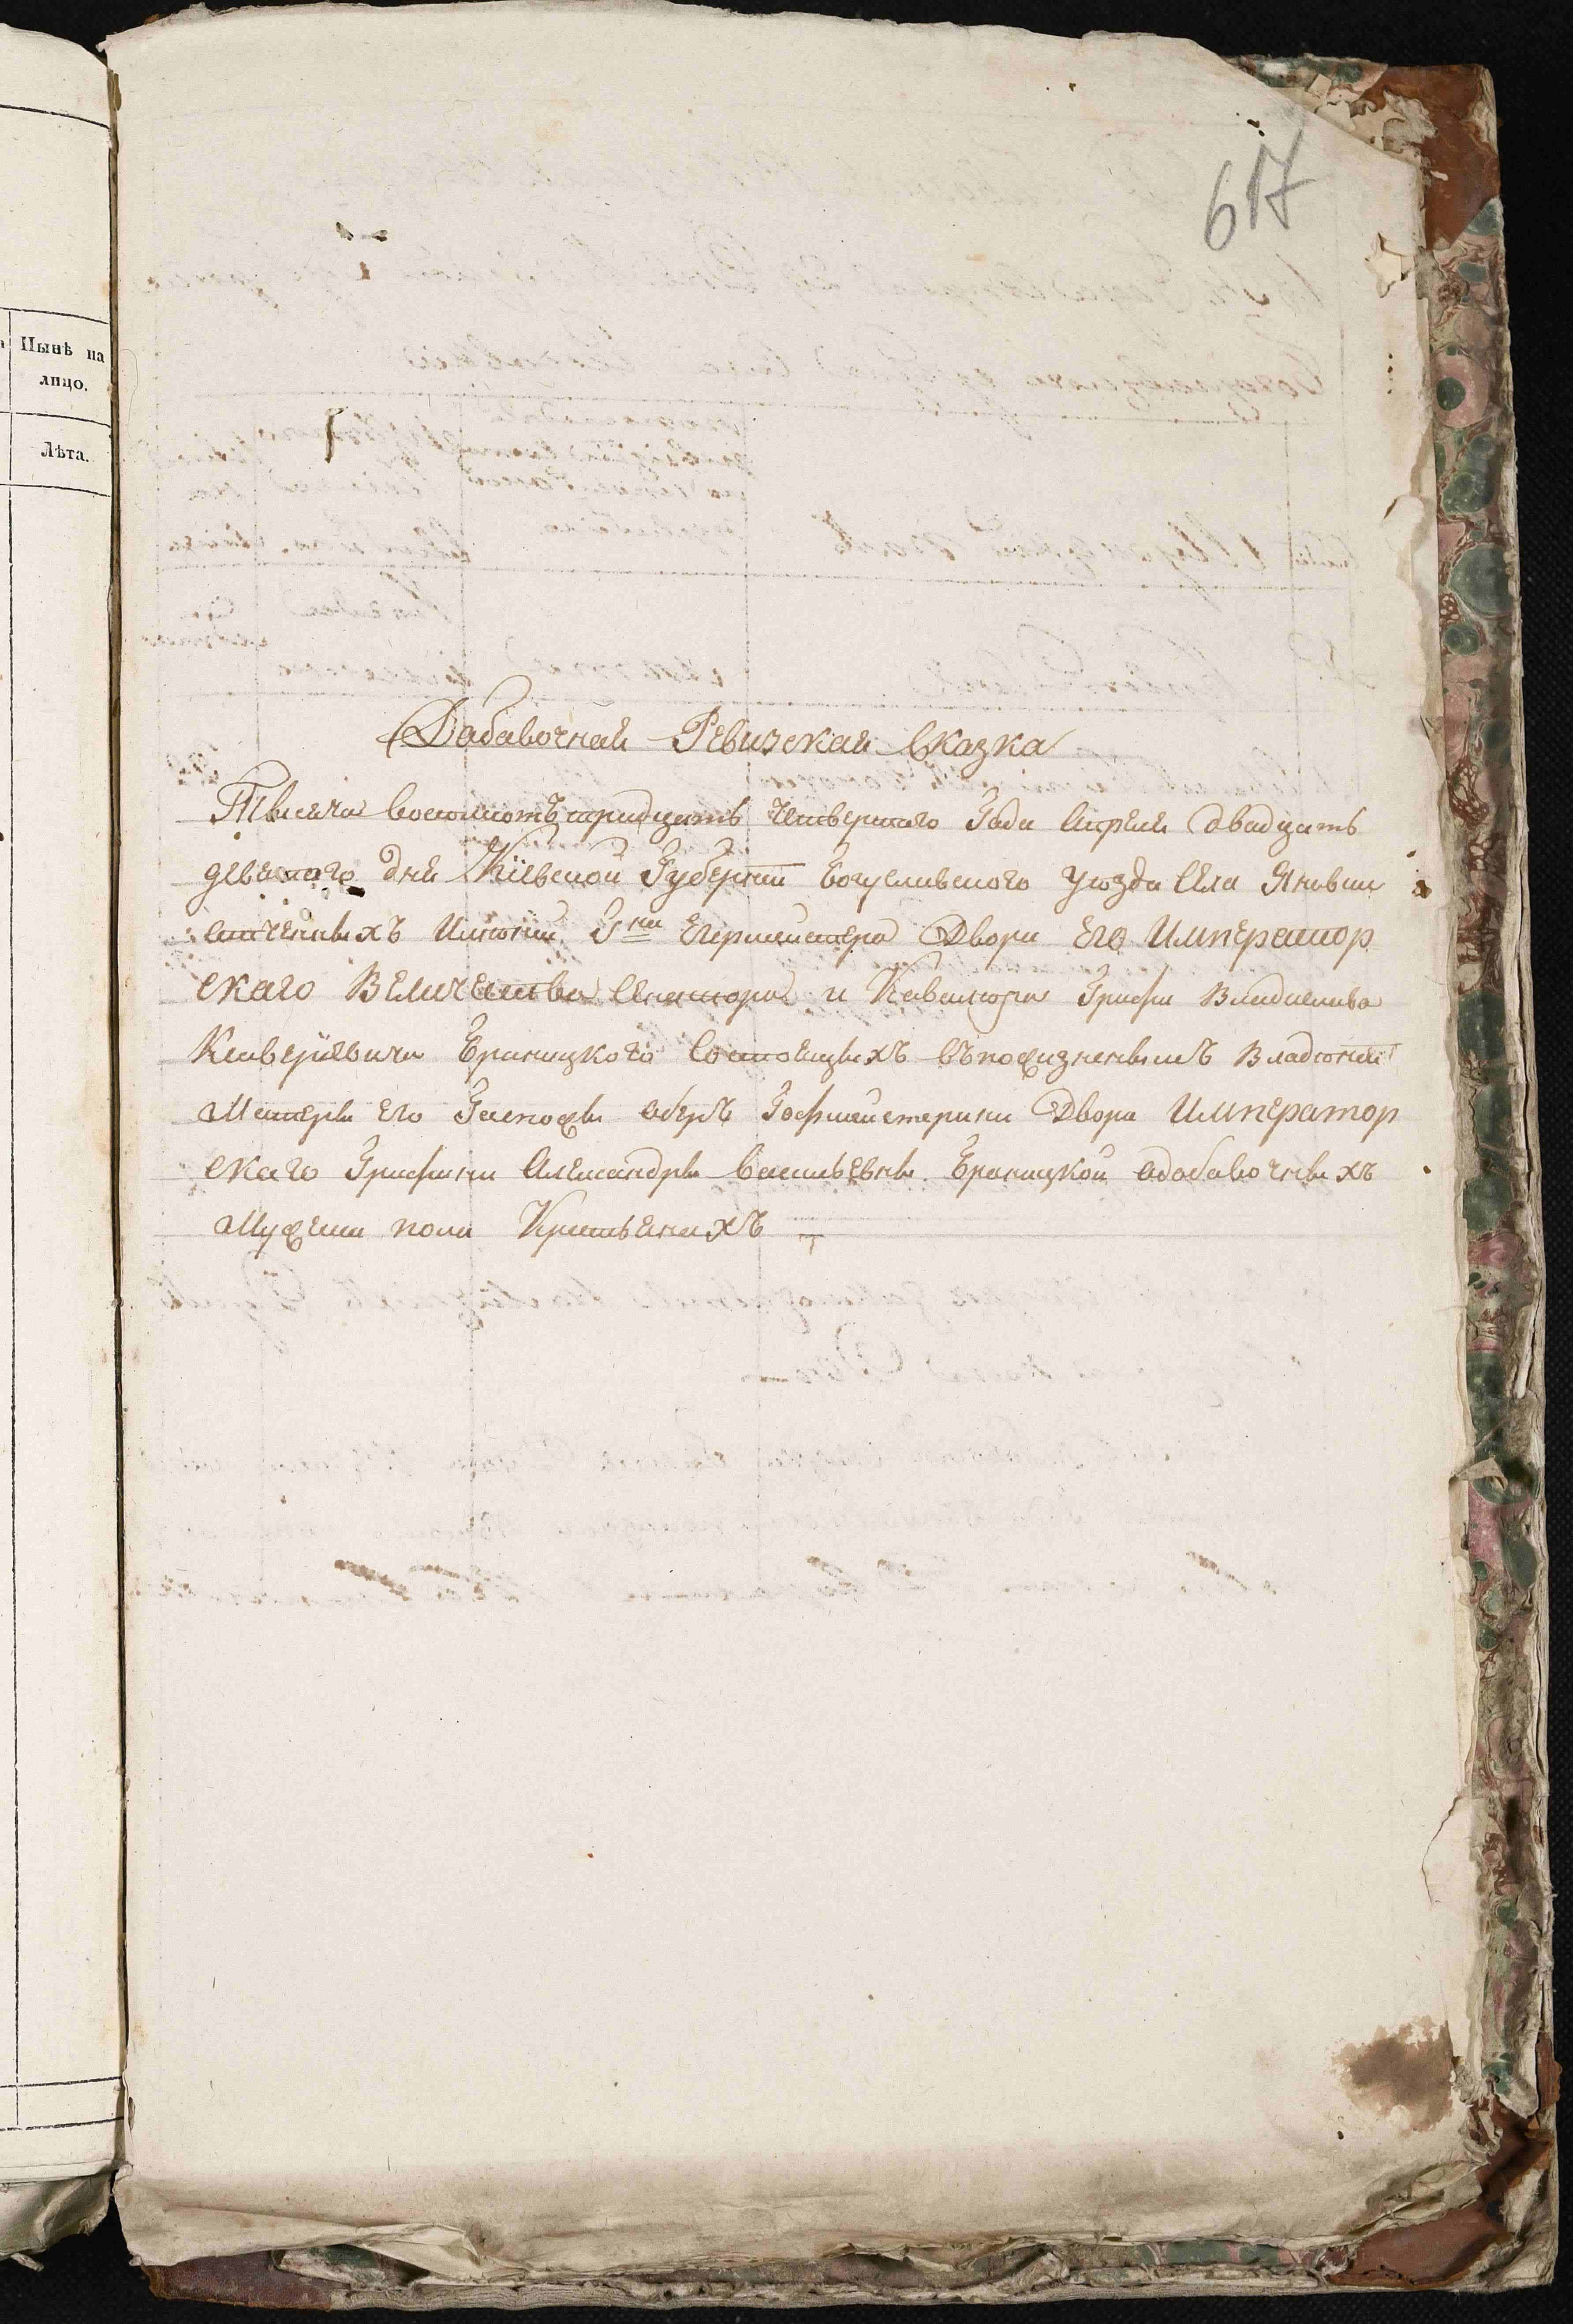 617
Нынѣ на
лицо.
Лѣта.
Дабавочная Ревизская Сказка
Тысяча восемьсотъ тридцать четвертаго Года Апреля двадцать
девятаго дня Кіевской Губерніи Богуславского уезда Села Яновки
имѣніи Гна Егермейстера Двора Его Император
скаго Величества Сенатора и Кавалера Графа Владислава
Ксаверіевича Браницкого Состоящихъ въпожизненнымъ Владѣніи
Матери Его Госпожи оберъ Гофмейстерини Двора Император
скаго Графини Александры Васильевны Браницкой одобавочныхъ
Мужеска пола Крестьянахъ